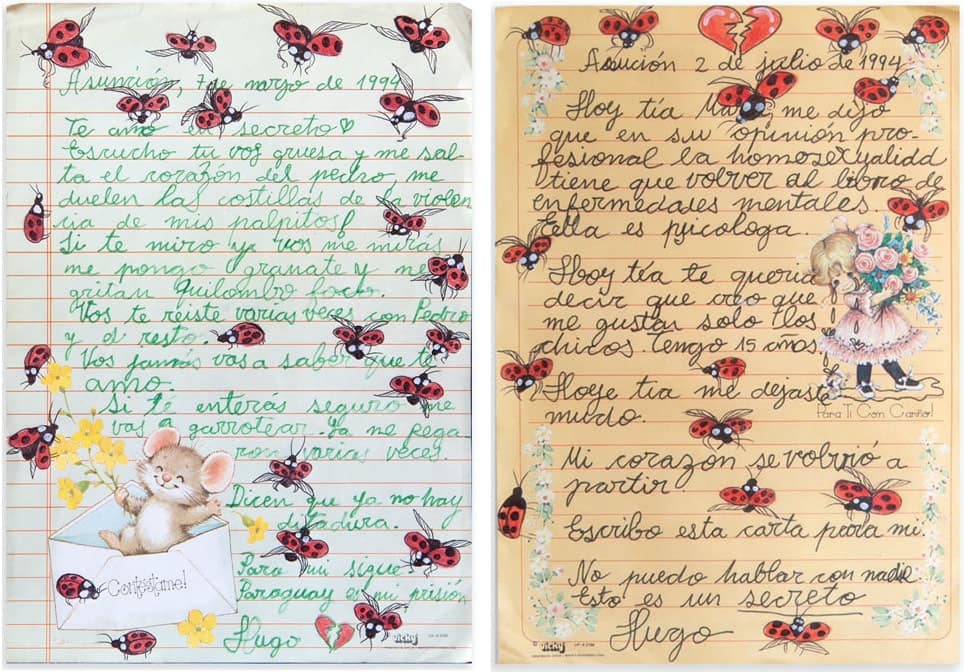 Asunción, 7 de marzo de 1994
Te amo en secreto
Escucho tu voz gruesa y me sal-
ta el corazón del pecho, me
duelen las costillas de la violen
cia de mis palpitos!
Si te miro y vos me mirás
me pongo granate y me
gritan Quilombo foco.
Vos te reíste varias veces con Pedro
y el resto.
Vos jamás vas a saber que te
amo.
Si te enterás seguro me
vas a garrotear. Ya me pega
ron varias veces.
Dicen que ya no hay
dictadura.
Para mi sigue
Paraguay es mi prisión
Contéstame!
Hugo
Vicky
Asución 2 de julio de 1994
Hoy tía me dijo
que en su opinión pro-
fesional la homosexualidd
tiene que volver al libro de
enfermedades mentales
Ella es psicologa.
Hoy tía te queria
decir que creo que
me gustan solo los
chicos. Tengo 15 años.
Para Ti Con Cariño!
Hoy tía me dejaste
mudo.
Mi corazón se volvió a
partir.
Escribo esta carta para mi.
No puedo hablar con nadie
Esto es un secreto
Hugo
Vicky